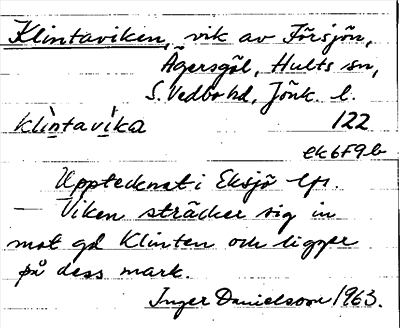 Klintaviken, vik av Försjön,
Ägersgöl, Hults sn,
S. Vedbo hd, Jönk. l.
klintavika 122
ek6F9b
Upptecknat i Eksjö lfs.
Viken sträcker sig in
mot gd Klinten och ligger
på dess mark.
Inger Danielsson 1963.